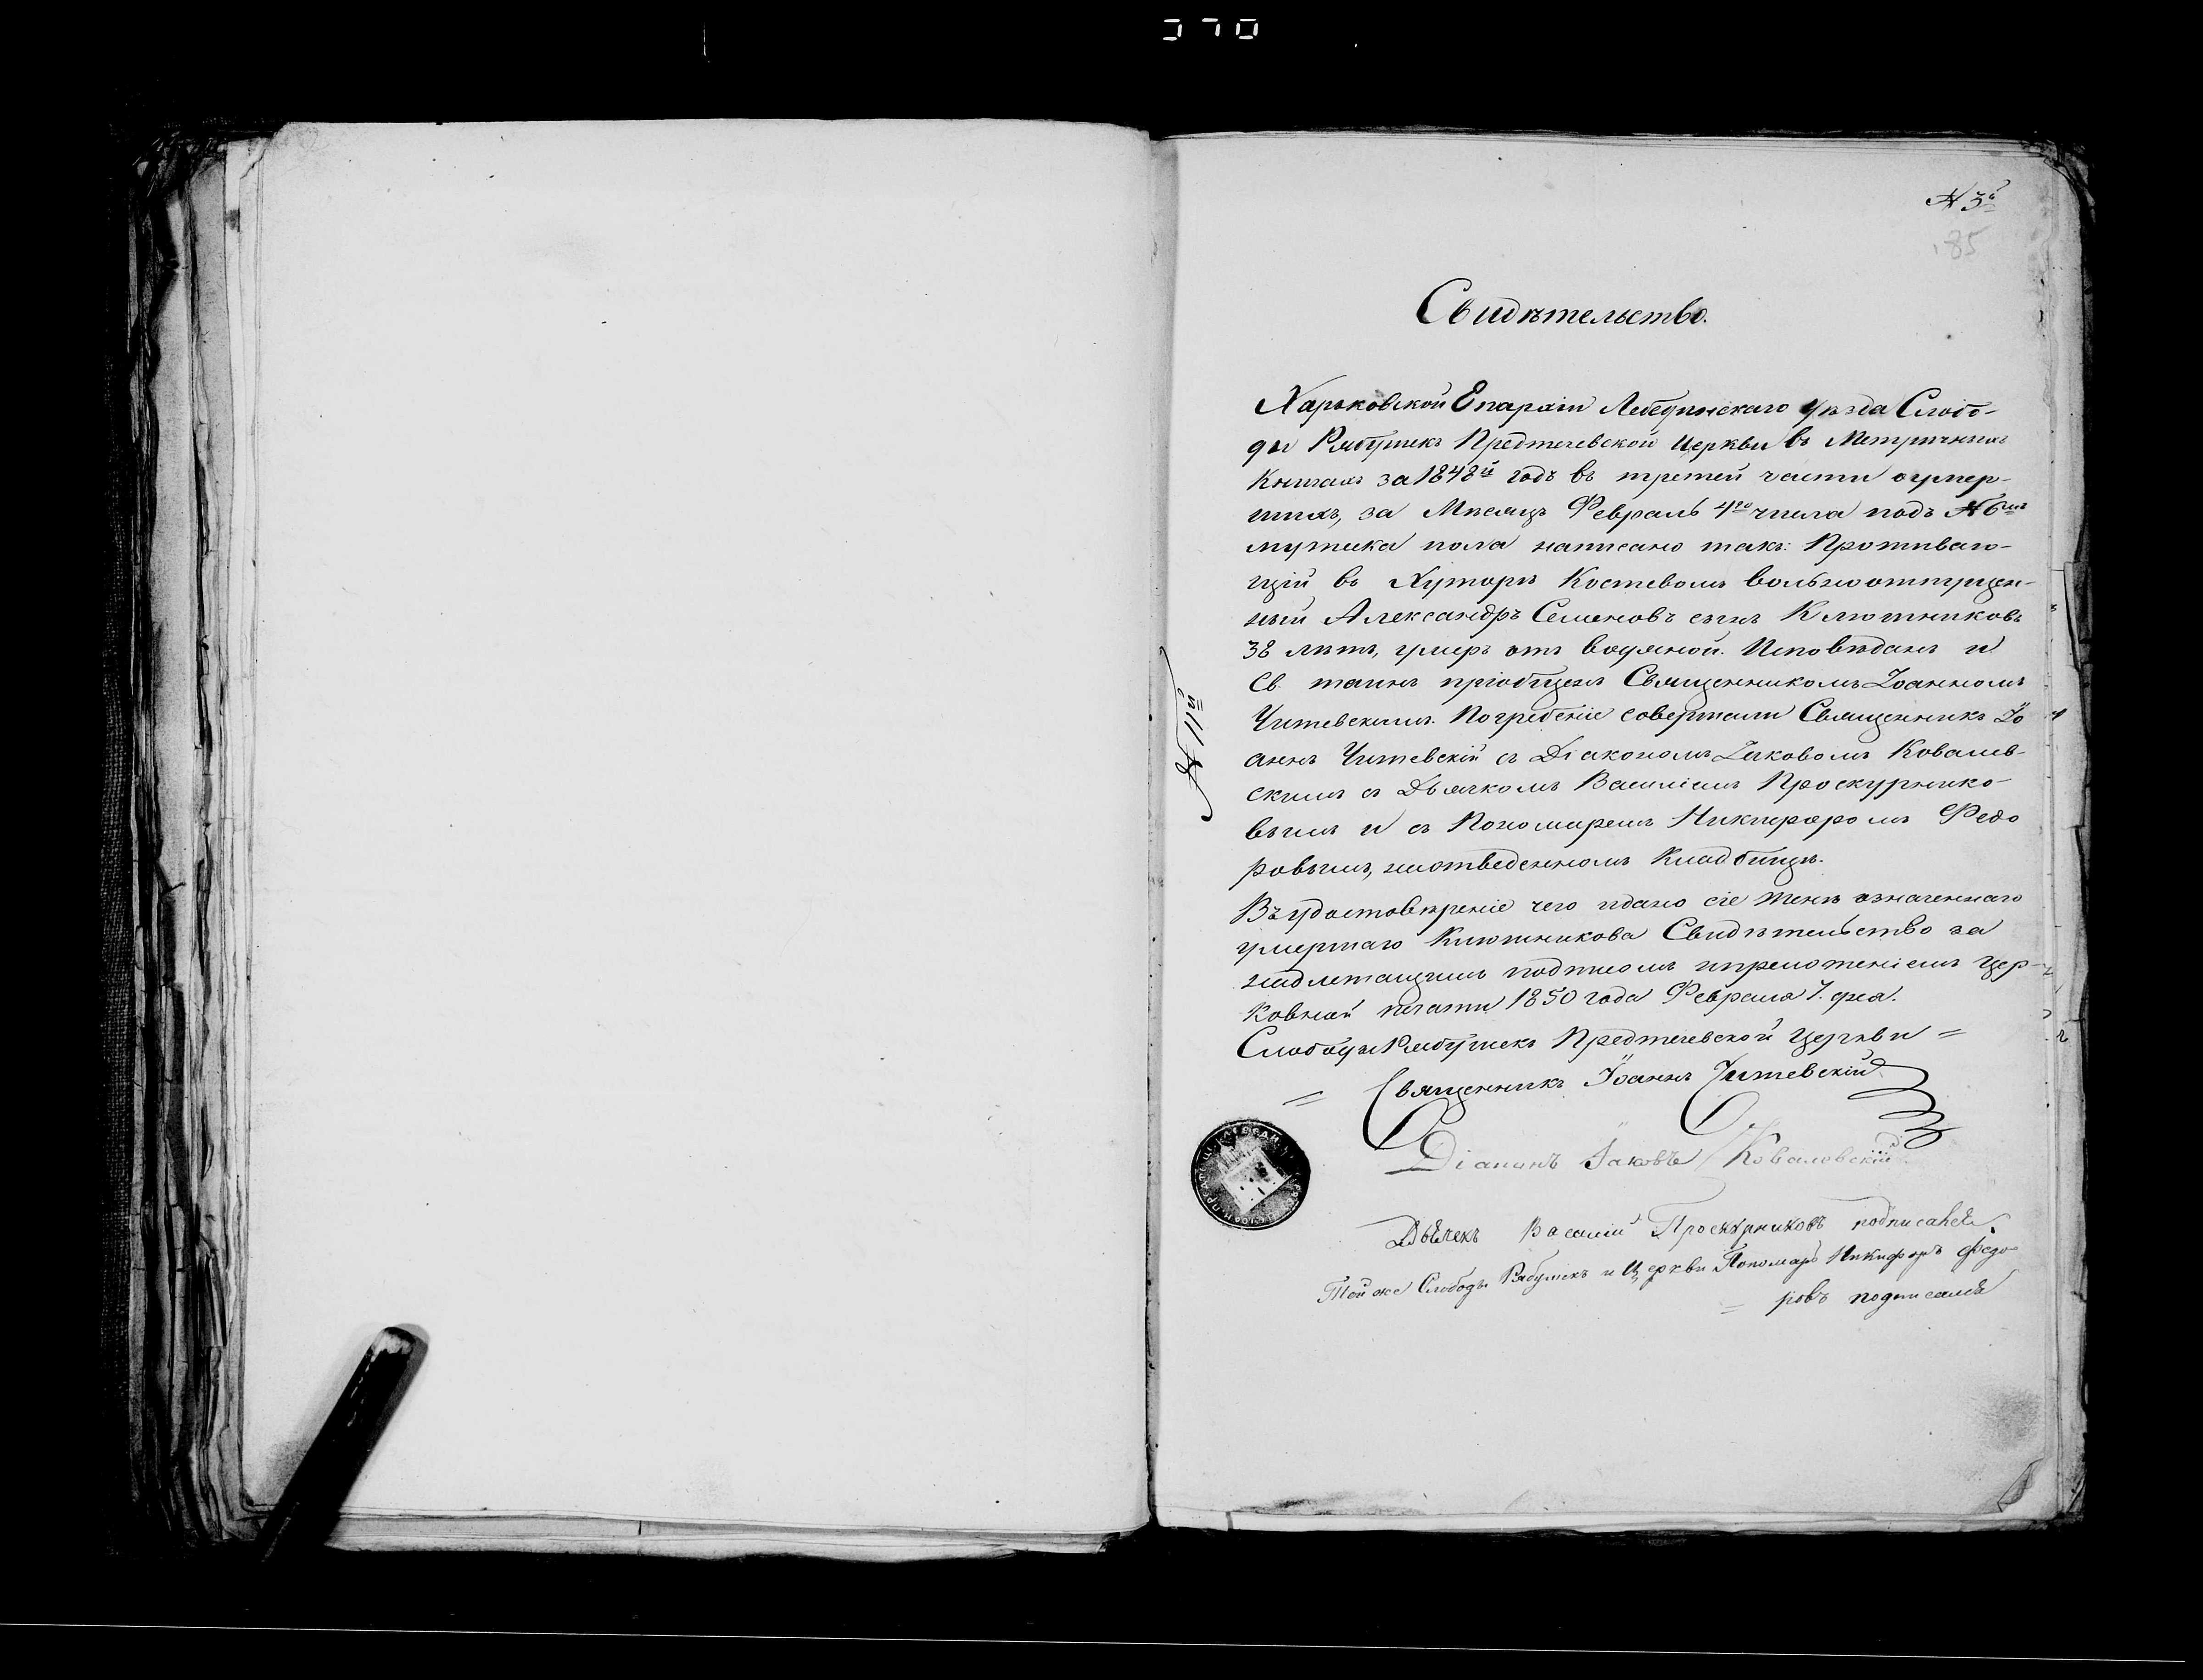 № 3й
85
Свидѣтельство.
Харьковской Епархіи Лебединскаго уѣзда Слобо-
ды Рябушекъ Предтечевской Церкви въ Метрическихъ
Книгахъ за 1848й годъ въ третей части о умер-
шихъ, за Мѣсяцъ Февраль 4го числа подъ № 6мъ
мужеска пола написано такъ: Проживаю-
щій въ Хуторѣ Костевомъ вольноотпущен-
ный Александръ Семеновъ сынъ Ключниковъ
38 лѣтъ, умеръ отъ водяной. Исповѣданъ и
Св. таинъ пріобщенъ Священникомъ Іоанномъ
Чижевскимъ. Погребеніе совершали Священникъ Іо
аннъ Чижевскій съ Діакономъ Іаковомъ Ковалев-
скимъ съ Дьячкомъ Василіемъ Проскурнико-
вымъ и съ Пономаремъ Никифоромъ Федо
ровымъ, наотведенномъ Кладбищѣ.
Въ удостовѣреніе чего и дано сіе женѣ означеннаго
умершаго Ключникова Свидѣтельство за
надлежащимъ подписомъ и приложеніемъ Цер-
ковной печати 1850 года Февраля 7. дня.
Слободы Рябушекъ Предтечевской Церкви =
= Священникъ Іоаннъ Чижевскій
Діаконъ Іаковъ Ковалевскій
Дьячекъ Василій Проскурниковъ подписался
Той же Слободы Рябушекъ и Церкви Пономаръ Никифоръ Федо-
= ровъ подписался
№ 11й